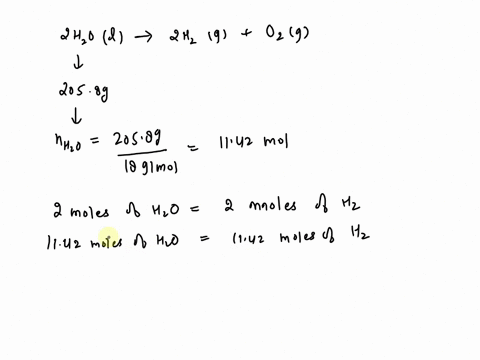 2H₂O (l) → 2H₂ (g) + O₂ (g)
↓
205.8g
↓
nH₂O = 205.8g / 18 g/mol = 11.42 mol
2 moles of H₂O = 2 moles of H₂
11.42 moles of H₂O = 11.42 moles of H₂